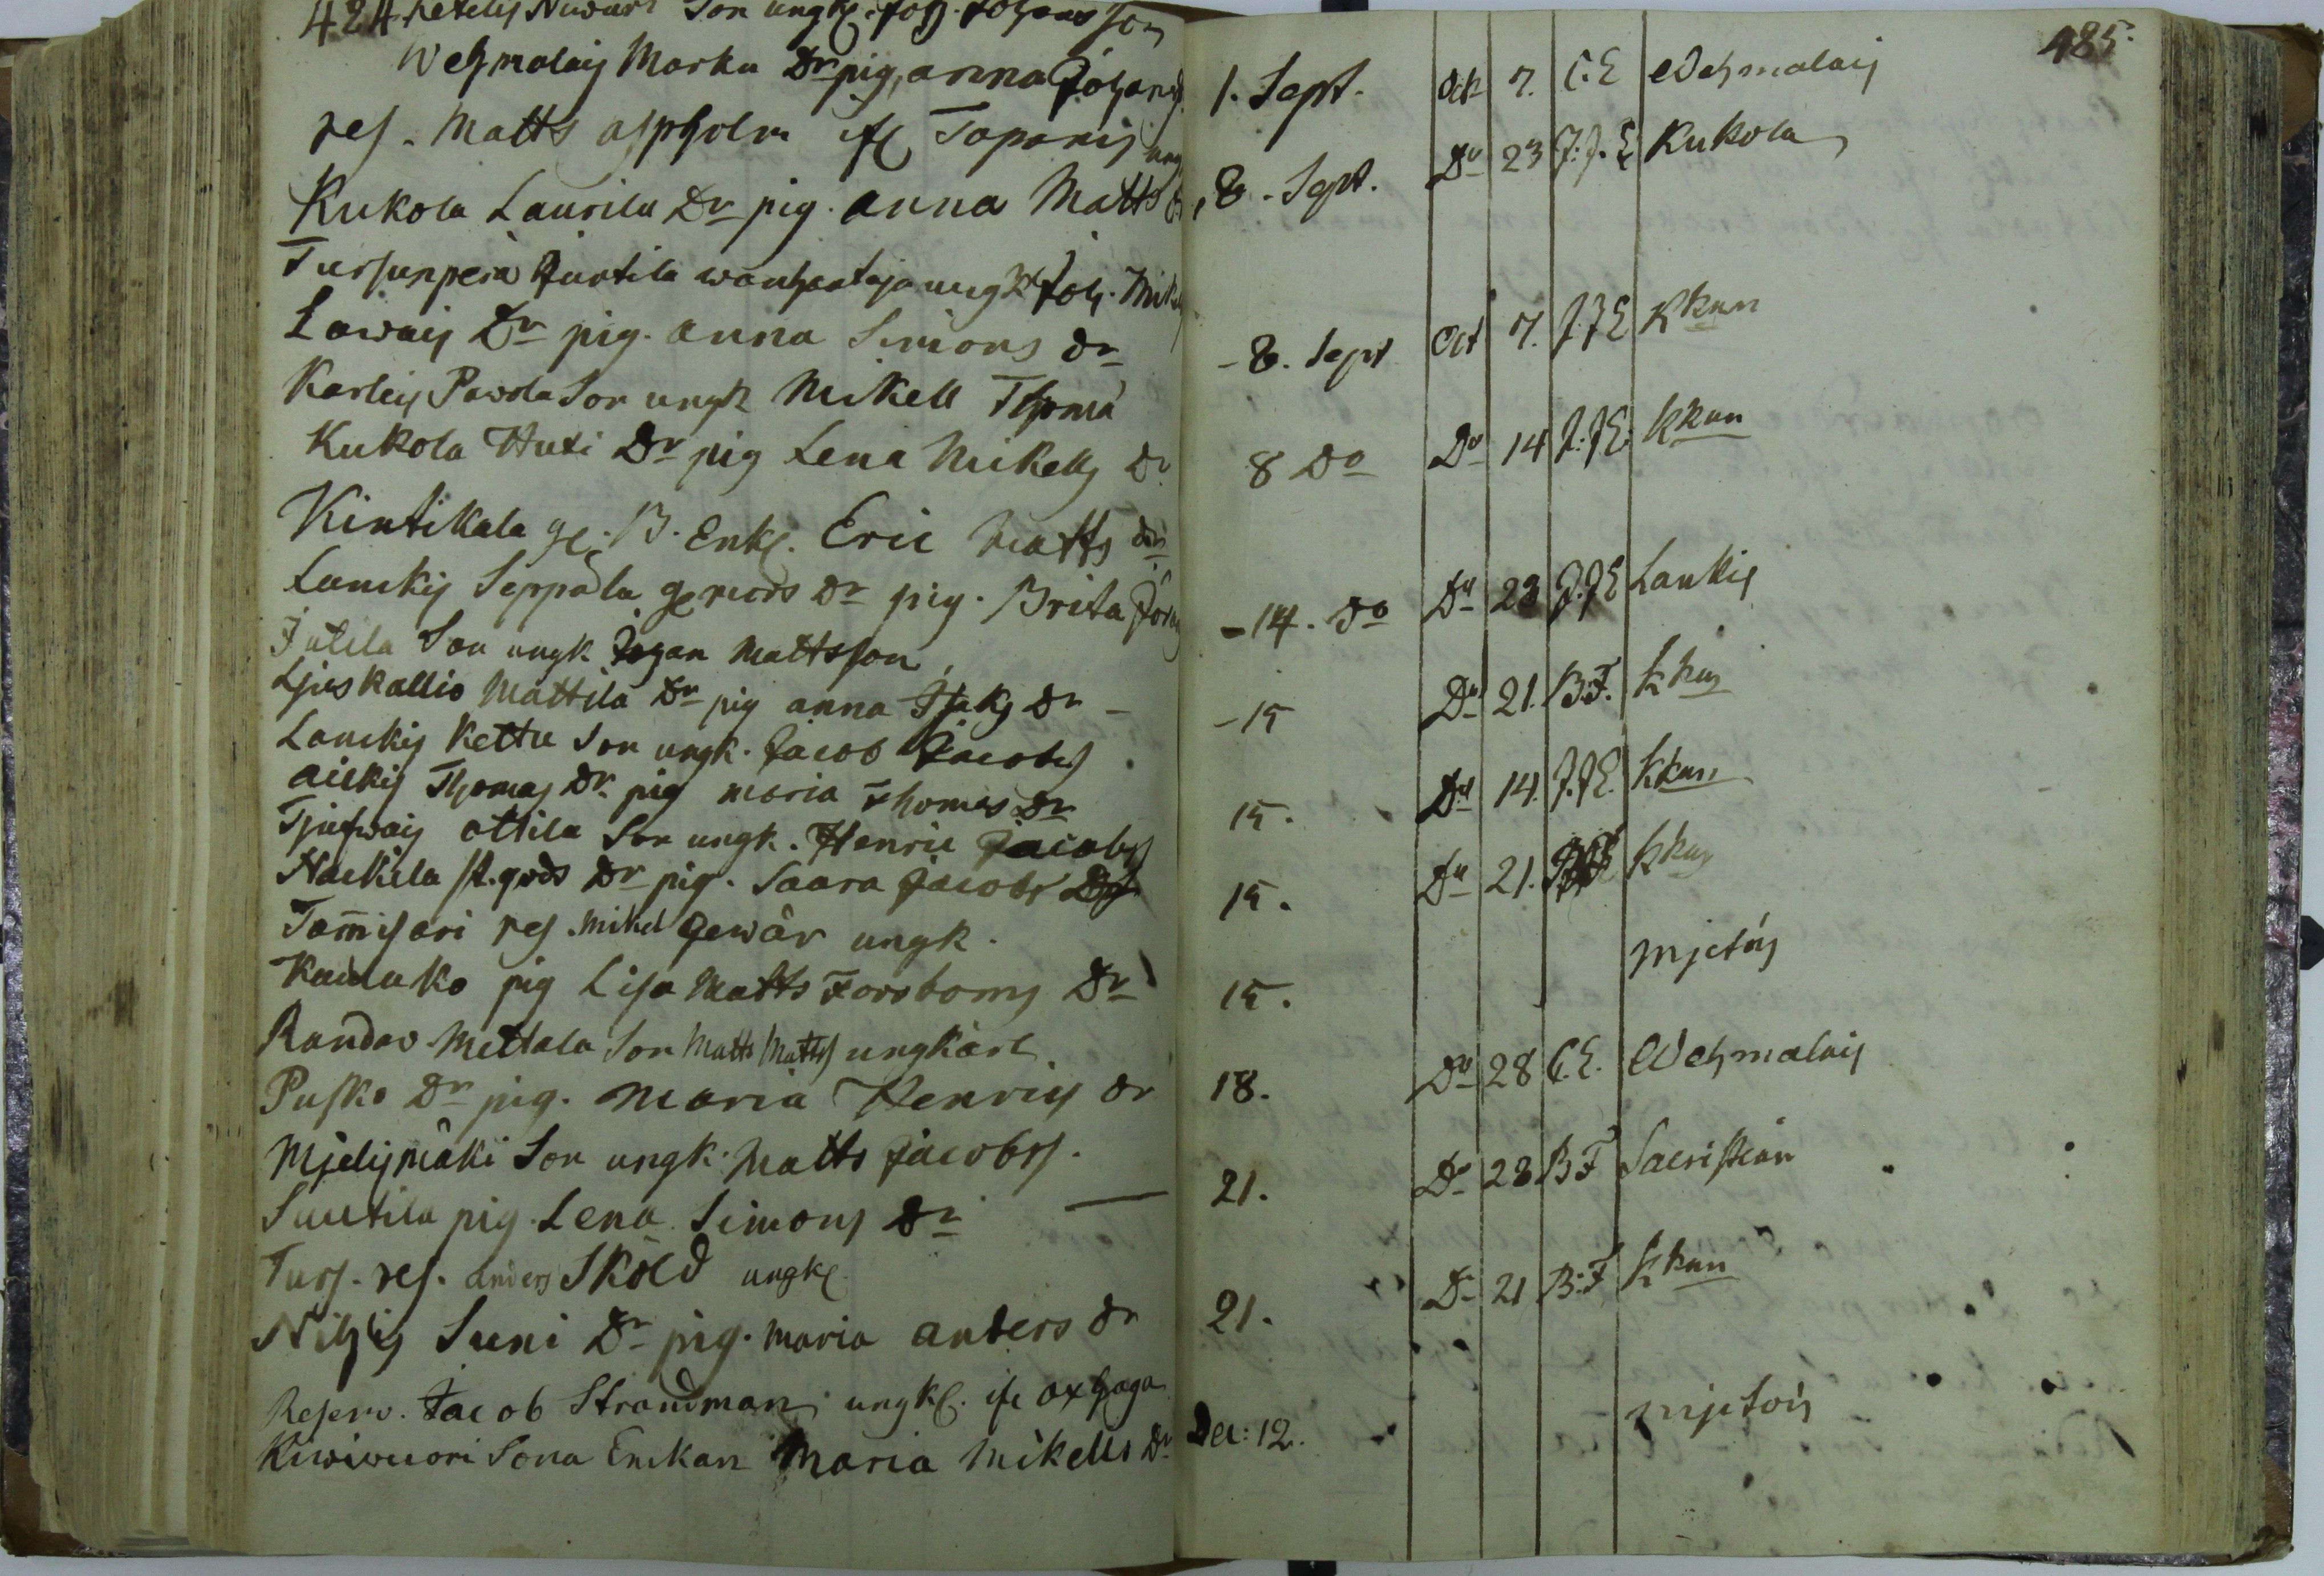 424 Ketelis Nuwari Son ungk. Joh. Johansson
Wehmalais Marku Dr pig, anna Johans
res. Matts aspholm ifr Toparis ung
Kukola Laurila Dr pig. anna Matts
Tursunperä Juotila wanhantajo ungk Joh. Mik
Lawais Dr pig. anna Simons dr
Karleis Pawola Son ungk Mikell Thoma
Kukola Huti Dr pig Lena Mikells Dr
Kintikala ge. B. Enkl. Eric Matts
Lanckis Seppala Dr pig. Brita
Jutila Son ungk. Johan Mattsson
Ljuskallio Mattila Dr pig anna Isaks Dr -
Lanckis Kettu Son ungk. Jacob Jacobs
aickis Thomas Dr pig maria Thomas Dr
ottila Son ungk. Henric Jacobs
Hackila st. gods Dr pig. Saara Jacobs
Tom̄isari res. mikel Gewär ungk.
pig Lisa Matts Forsboms Dr
Randar Mettala Son Matts Matts ungkarl
Pusko Dr pig. Maria Henrics dr
Mjelismäki Son ungk. Matts Jacobss.
Suutila pig. Lena Simons Dr
Turs. res. anders Sköld ungk.
Nihis Suni Dr pig. Maria anders dr
Reserv. Jacob Strandman ungk. ifr oxhaga
Kiwiwuori Sona Enckan Maria Mikells Dr
485.
1. Sept. Oct 7. C.E Wehmalais
8. Sept. Do 23 J.J.E Kukola
- 8. Sept Oct 7. J.J.E Kkan
8 Do Do 14 J.J.E. Kkan
- 14. Do Do 28 J.J.E Lankis
- 15 Do 21. B.F. Kkan
15. Do 14. J.J.E. Kkan
15. Do 21. Kkan
15. Mjetois
18. Do 28 C.E. Wehmalais
21. Do 28 B.F Sacristian
21. Do 21 B.F Kkan
Dec: 12. mjetois